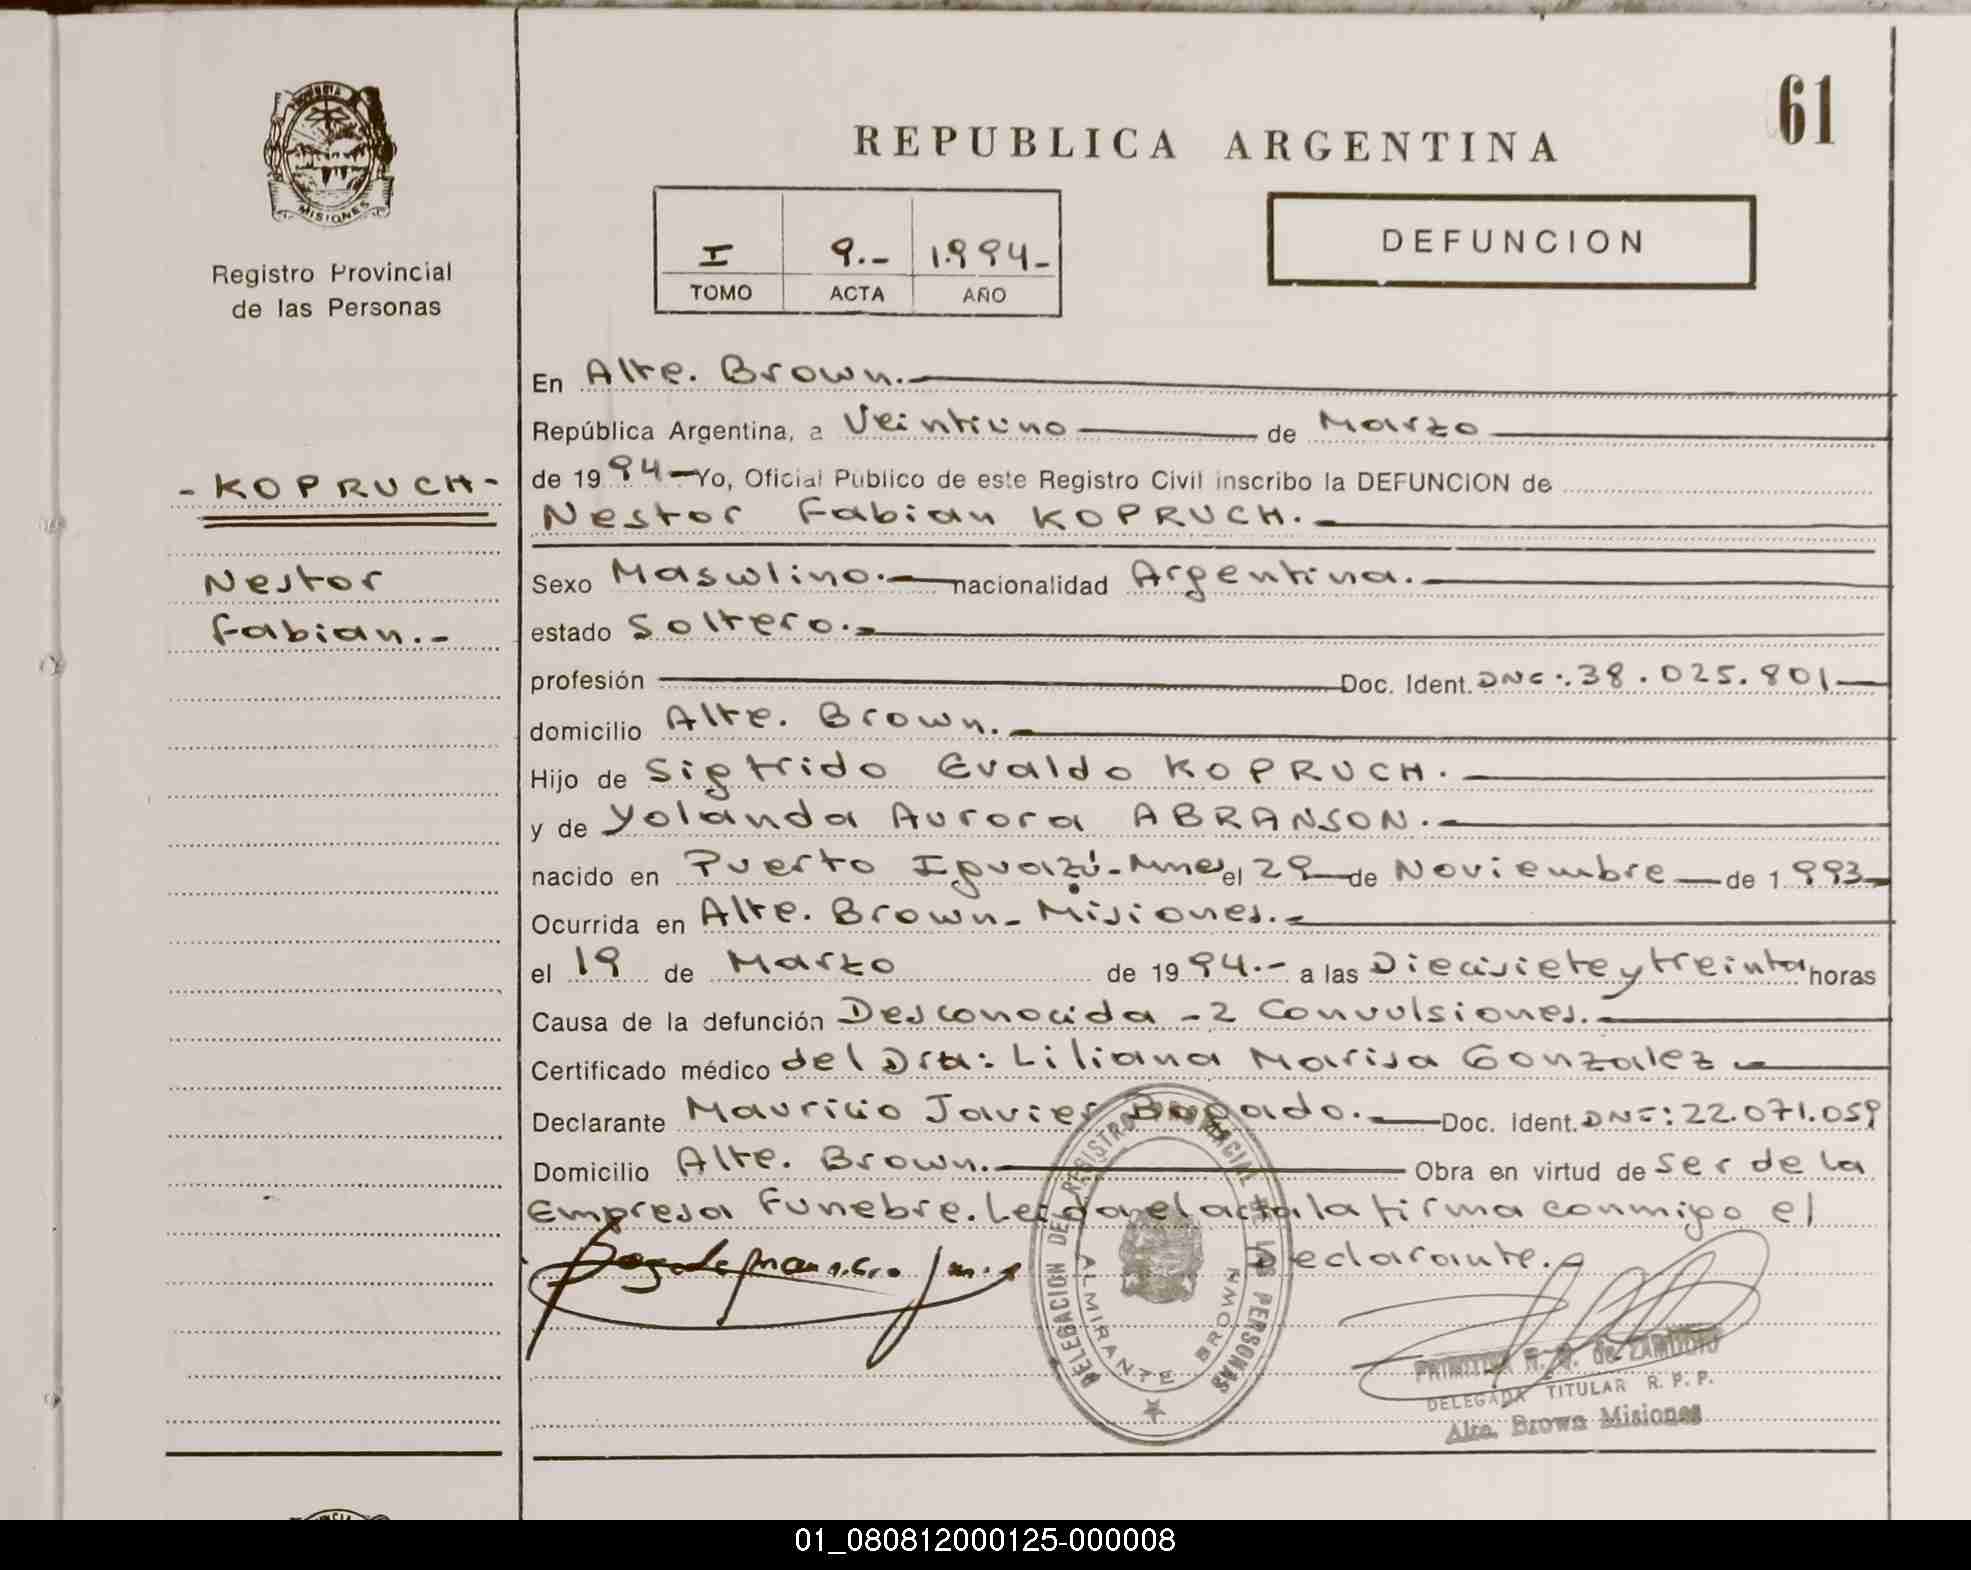 PROVINCIA
MISIONES
Registro Provincial
de las Personas
61
REPUBLICA ARGENTINA
I 9.- 1.994-
TOMO ACTA AÑO
DEFUNCION
En Alte. Brown.
República Argentina, a Veintiuno de Marzo
- KOPRUCH -
de 1994 Yo, Oficial Público de este Registro Civil inscribo la DEFUNCION de
Nestor Fabian KOPRUCH.
Nestor
Fabian.-
Sexo Masculino. nacionalidad Argentina.
estado Soltero.
profesión Doc. Ident. DNI: 38.025.801
domicilio Alte. Brown.
Hijo de Sigfrido Evaldo KOPRUCH.
y de Yolanda Aurora ABRANSON.
nacido en Puerto Iguazú- Mnes el 29 de Noviembre de 1.993
Ocurrida en Alte. Brown- Misiones.
el 19 de Marzo de 1994.- a las Diecisiete y treinta horas
Causa de la defunción Desconocida - 2 Convulsiones.
Certificado médico del Dra: Liliana Marisa Gonzalez
Declarante Mauricio Javier Bogado. Doc. Ident. DNI: 22.071.059
Domicilio Alte. Brown. Obra en virtud de ser de la
Empresa Funebre. Leida el acta la firma conmigo el
Declarante.
DELEGACION DEL REGISTRO PROVINCIAL DE LAS PERSONAS
ALMIRANTE BROWN
de ZAMUDIO
DELEGADA TITULAR R. P. P.
Alte. Brown Misiones
01_080812000125-000008